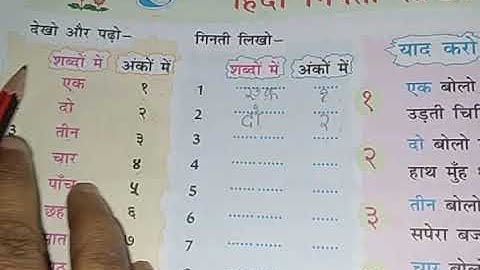 हिंदी गिनती
देखो और पढ़ो-
शब्दों में अंकों में
एक १
दो २
तीन ३
चार ४
पाँच ५
छह ६
सात ७
गिनती लिखो-
शब्दों में अंकों में
1 एक १
2 दो २
3
4
5
6
7
याद करो
१ एक बोलो
उड़ती चि
२ दो बोलो
हाथ मुँह
३ तीन बोलो
सपेरा बज
चार बोलो